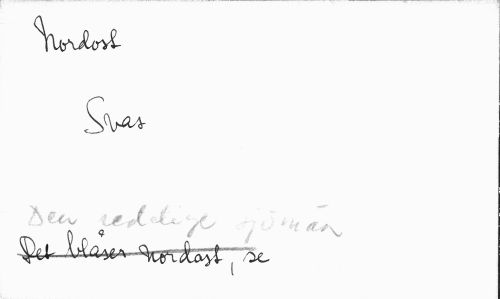 Nordost
Svas
Den redelige sjöman
Det blåser nordost, se